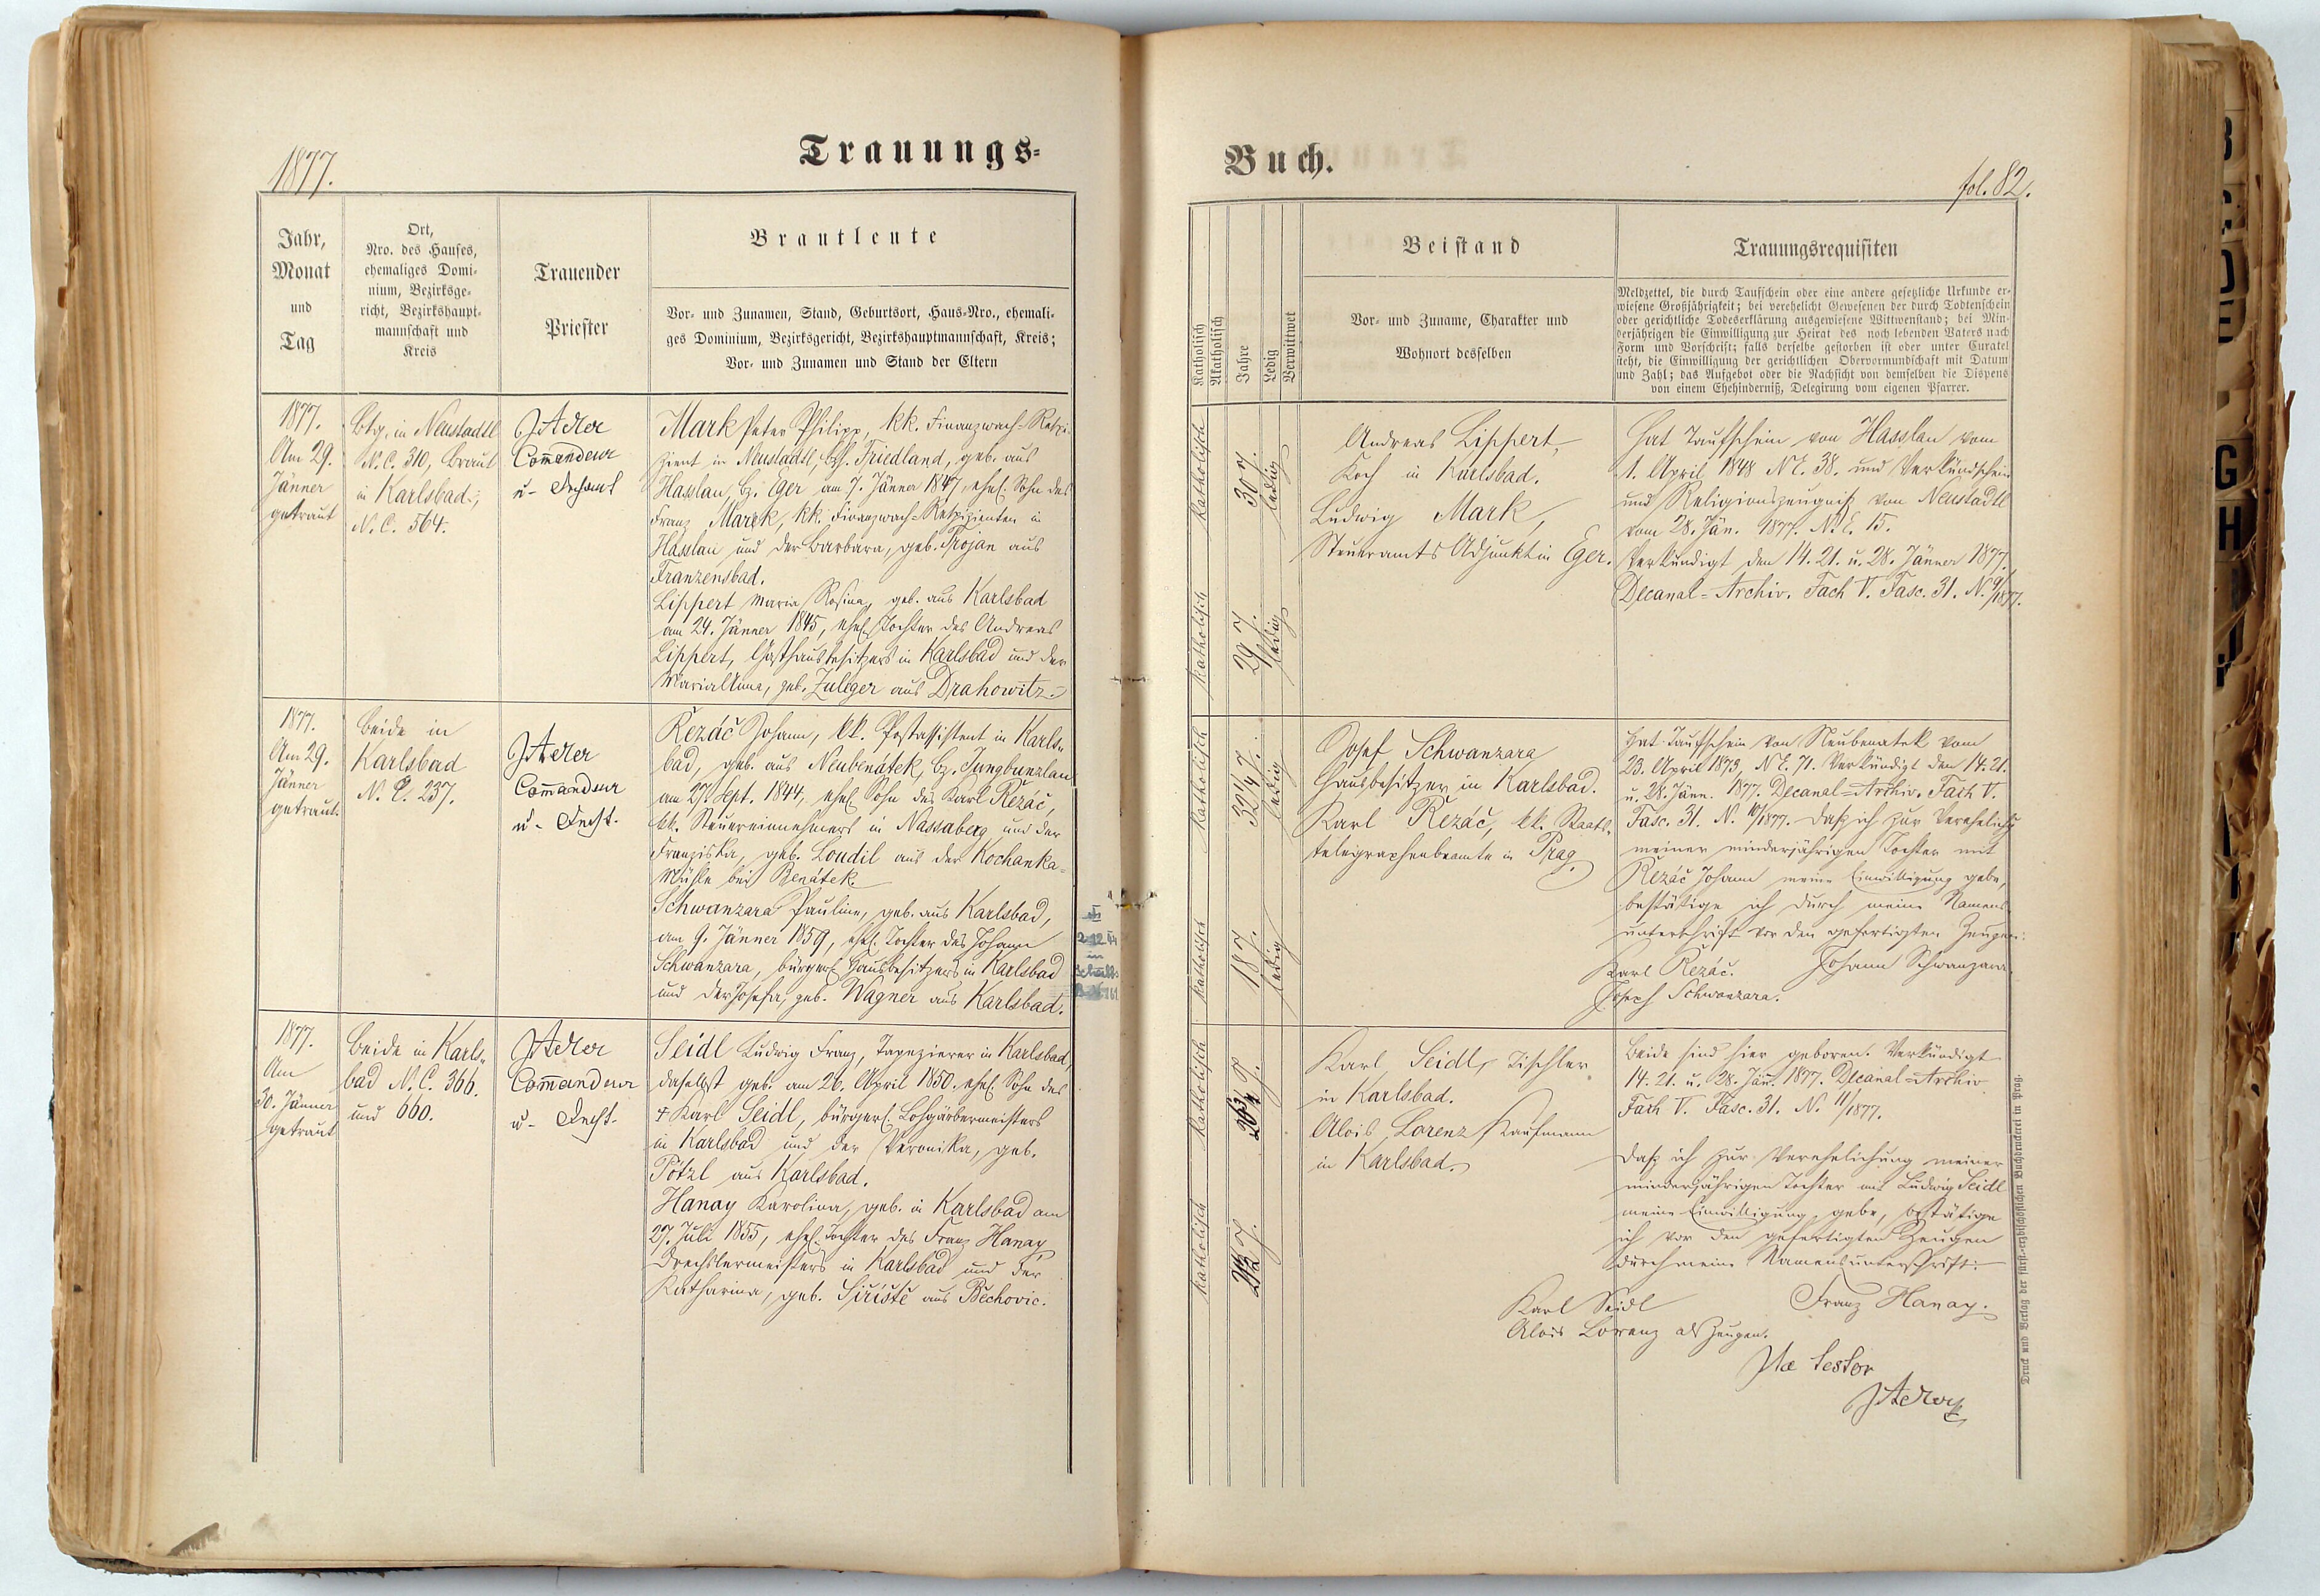 1877.
Trauungs-
Jahr,
Monat
und
Tag
Ort,
Nro. des Hauses,
ehemaliges Domi-
nium, Bezirksge-
richt, Bezirkshaupt-
mannschaft und
Kreis
Trauender
Priester
Brautleute
Vor- und Zunamen, Stand, Geburtsort, Haus-Nro., ehemali-
ges Dominium, Bezirksgericht, Bezirkshauptmannschaft, Kreis;
Vor- und Zunamen und Stand der Eltern
1877.
Am 29.
Jänner
getraut
Btg. in Neustadtl
N.C. 310, Braut
in Karlsbad,
N.C. 564.
JAdler
Com̄andeur
u. Dechant
Mark Peter Philipp, kk. Finanzwach-Respi-
zient in Neustadtl, Bz. Friedland, geb. aus
Hasslau, Bz. Eger am 7. Jänner 1847, ehel. Sohn des
Franz Marek, kk. Finanzwach-Respizienten in
Hasslau und der Barbara, geb. Trojan aus
Franzensbad.
Lippert Maria Rosina, geb. aus Karlsbad
am 24. Jänner 1845, ehel. Tochter des Andreas
Lippert, Gasthausbesitzers in Karlsbad und der
Maria Anna, geb. Zuleger aus Drahowitz.
1877.
Am 29.
Jänner
getraut.
Beide in
Karlsbad
N. C. 237.
JAdler
Com̄andeur
u. Decht.
Rezáč Johann, kk. Postassistent in Karls-
bad, geb. aus Neubenátek, Bz. Jungbunzlau
am 27. Sept. 1844, ehel. Sohn des Karl Rezáč,
kk. Steuereinnehmers in Nassaberg und der
Franziska, geb. Loudil aus der Kochanka-
Mühle bei Benátek.
Schwanzara Pauline, geb. aus Karlsbad,
am 9. Jänner 1859, ehel. Tochter des Johann
Schwanzara, bürgerl. Hausbesitzers in Karlsbad
und der Josefa, geb. Wagner aus Karlsbad.
1877.
Am
30. Jänner
getraut
Beide in Karls-
bad N.C. 366.
und 660.
JAdler
Com̄andeur
u. Decht.
Seidl Ludwig Franz, Tapezierer in Karlsbad,
daselbst geb. am 26. April 1850. ehel. Sohn des
† Karl Seidl, bürgerl. Lohgärbermeisters
in Karlsbad und der Veronika, geb.
Pötzl aus Karlsbad.
Hanay Karolina, geb. in Karlsbad am
27. Juli 1855, ehel. Tochter des Franz Hanay
Drechslermeisters in Karlsbad und der
Katharina, geb. Siristé aus Bechovic.
Buch.
fol. 82.
Katholisch
Akatholisch
Jahre
Ledig
Verwittwet
Beistand
Vor- und Zuname, Charakter und
Wohnort desselben
Trauungsrequisiten
Meldzettel, die durch Taufschein oder eine andere gesetzliche Urkunde er-
wiesene Großjährigkeit; bei verehelicht Gewesenen der durch Todtenschein
oder gerichtliche Todeserklärung ausgewiesene Wittwenstand; bei Min-
derjährigen die Einwilligung zur Heirat des noch lebenden Vaters nach
Form und Vorschrift; falls derselbe gestorben ist oder unter Curatel
steht, die Einwilligung der gerichtlichen Obervormundschaft mit Datum
und Zahl; das Aufgebot oder die Nachsicht von demselben die Dispens
von einem Ehehinderniß, Delegirung vom eigenen Pfarrer.
Katholisch
30 J.
ledig
Katholisch
29 J.
ledig
Andreas Lippert,
Koch in Karlsbad.
Ludwig Mark,
Steueramts Adjunkt in Eger.
Hat Taufschein von Hasslau vom
1. April 1848 N.E. 38. und Verkündschein
und Religionszeugniß von Neustadtl
vom 28. Jän. 1877. N.E. 15.
Verkündigt den 14. 21. u. 28. Jänner 1877.
Decanal-Archiv. Fach V. Fasc. 31. N. 9/1877.
Katholisch
32 1/4 J.
ledig
Katholisch
18 J.
ledig
Josef Schwanzara
Hausbesitzer in Karlsbad.
Karl Rezáč, kk. Staats-
telegraphenbeamte in Prag.
Hat Taufschein von Neubenatek vom
23. April 1873, N.E. 71. Verkündigt den 14. 21.
u. 28. Jänn. 1877. Decanal-Archiv. Fach V.
Fasc. 31. N. 10/1877. Daß ich zur Verehelichg
meiner minderjährigen Tochter mit
Rezáč Johann meine Einwilligung gebe,
bestätige ich durch meine Namens-
unterschrift vor den gefertigten Zeugen:
Karl Rezáč. Johann Schwanzara.
Joseph Schwanzara.
Katholisch
26 3/4 J.
Katholisch
21 1/2 J.
Karl Seidl, Tischler
in Karlsbad.
Alois Lorenz Kaufmann
in Karlsbad.
Beide sind hier geboren. Verkündigt
14. 21. u. 28. Jän. 1877. Decanal-Archiv
Fach V. Fasc. 31. N. 11/1877.
Daß ich zur Verehelichung meiner
minderjährigen Tochter mit Ludwig Seidl
meine Einwilligung gebe, bestätige
ich vor den gefertigten Zeugen
durch meine Namensunterschrift:
Karl Seidl Franz Hanay.
Alois Lorenz als Zeugen.
JAdler
Druck und Verlag der fürst-erzbischöflichen Buchdruckerei in Prag.